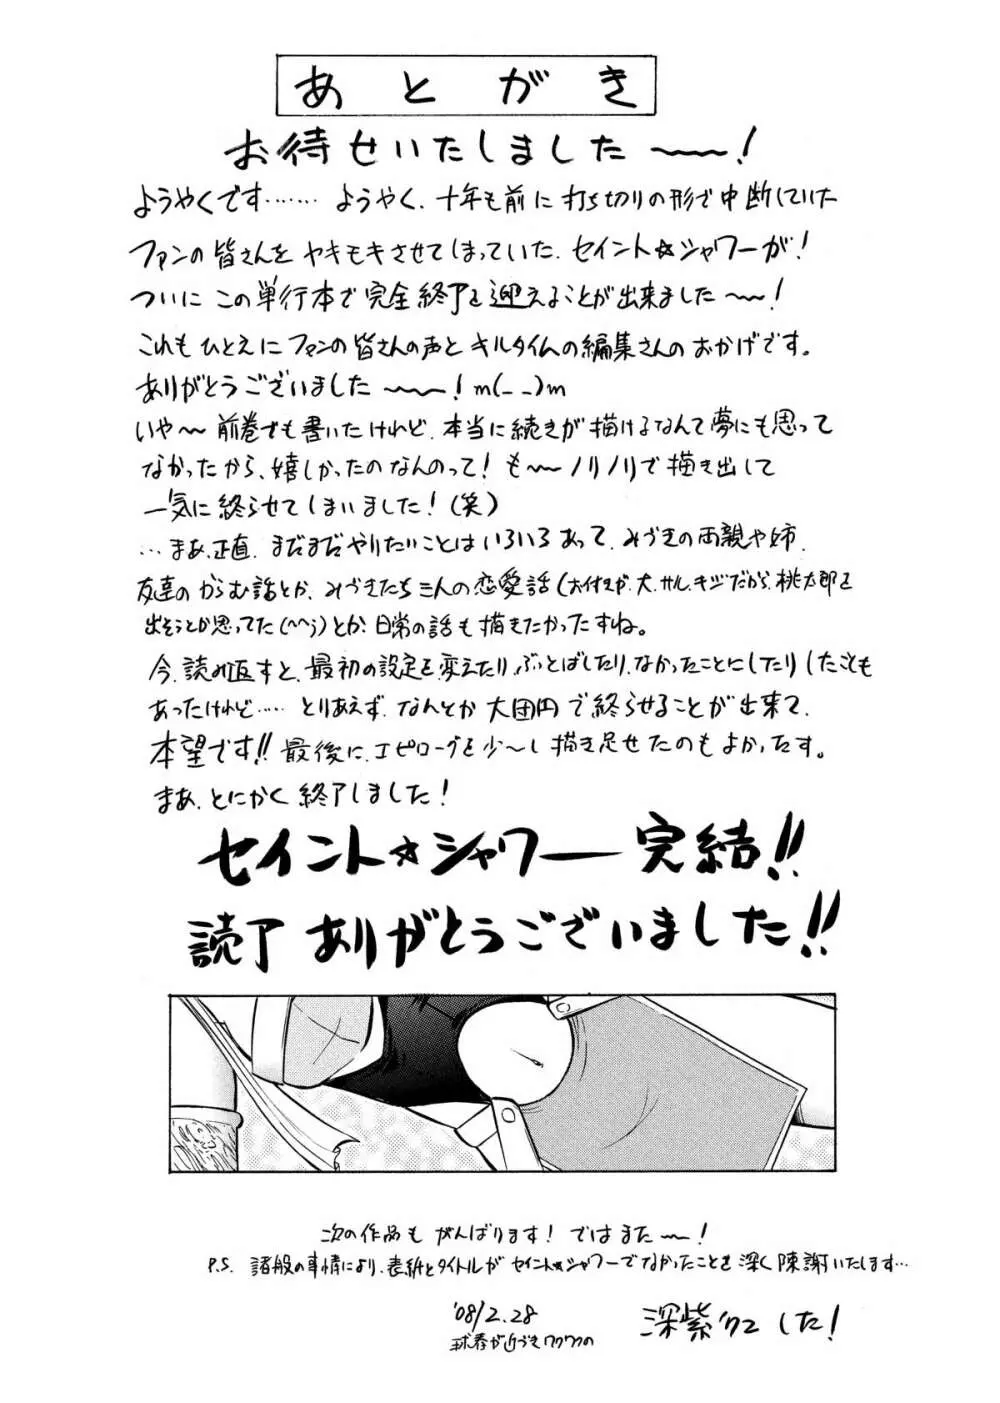 あとがき
お待せいたしました〜〜!
ようやくです……ようやく、十年も前に打ち切りの形で中断していた
ファンの皆さんをヤキモキさせてしまっていた、セイント☆シャワーが!
ついにこの単行本で完全終了を迎えることが出来ました〜〜!
これもひとえにファンの皆さんの声とキルタイムの編集さんのおかげです。
ありがとうございました〜〜〜!m(_ _)m
いや〜〜前巻でも書いたけれど、本当に続きが描けるなんて夢にも思って
なかったから、嬉しかったのなんのって!も〜〜ノリノリで描き出して
一気に終らせてしまいました!(笑)
…まあ、正直、まだまだやりたいことはいろいろあって、みづきの両親や姉、
友達のからむ話とか、みづきたち三人の恋愛話(お付きが、犬、サル、キジだから、桃太郎を
出そうとか思ってた(^^;)とか、日常の話も描きたかったすね。
今、読み返すと、最初の設定を変えたり、ぶっとばしたり、なかったことにしたりしたことも
あったけれど……とりあえず、なんとか大団円で終らせることが出来て、
本望です!!最後に、エピローグを少〜し描き足せたのもよかったす。
まあ、とにかく終了しました!
セイント☆シャワー完結!!
読了ありがとうございました!!
次の作品もがんばります!ではまた〜〜!
P.S. 諸般の事情により、表紙とタイトルがセイント☆シャワーでなかったことを深く陳謝いたします…
'08/2.28
球春が近づきワクワクの
深紫 でした!